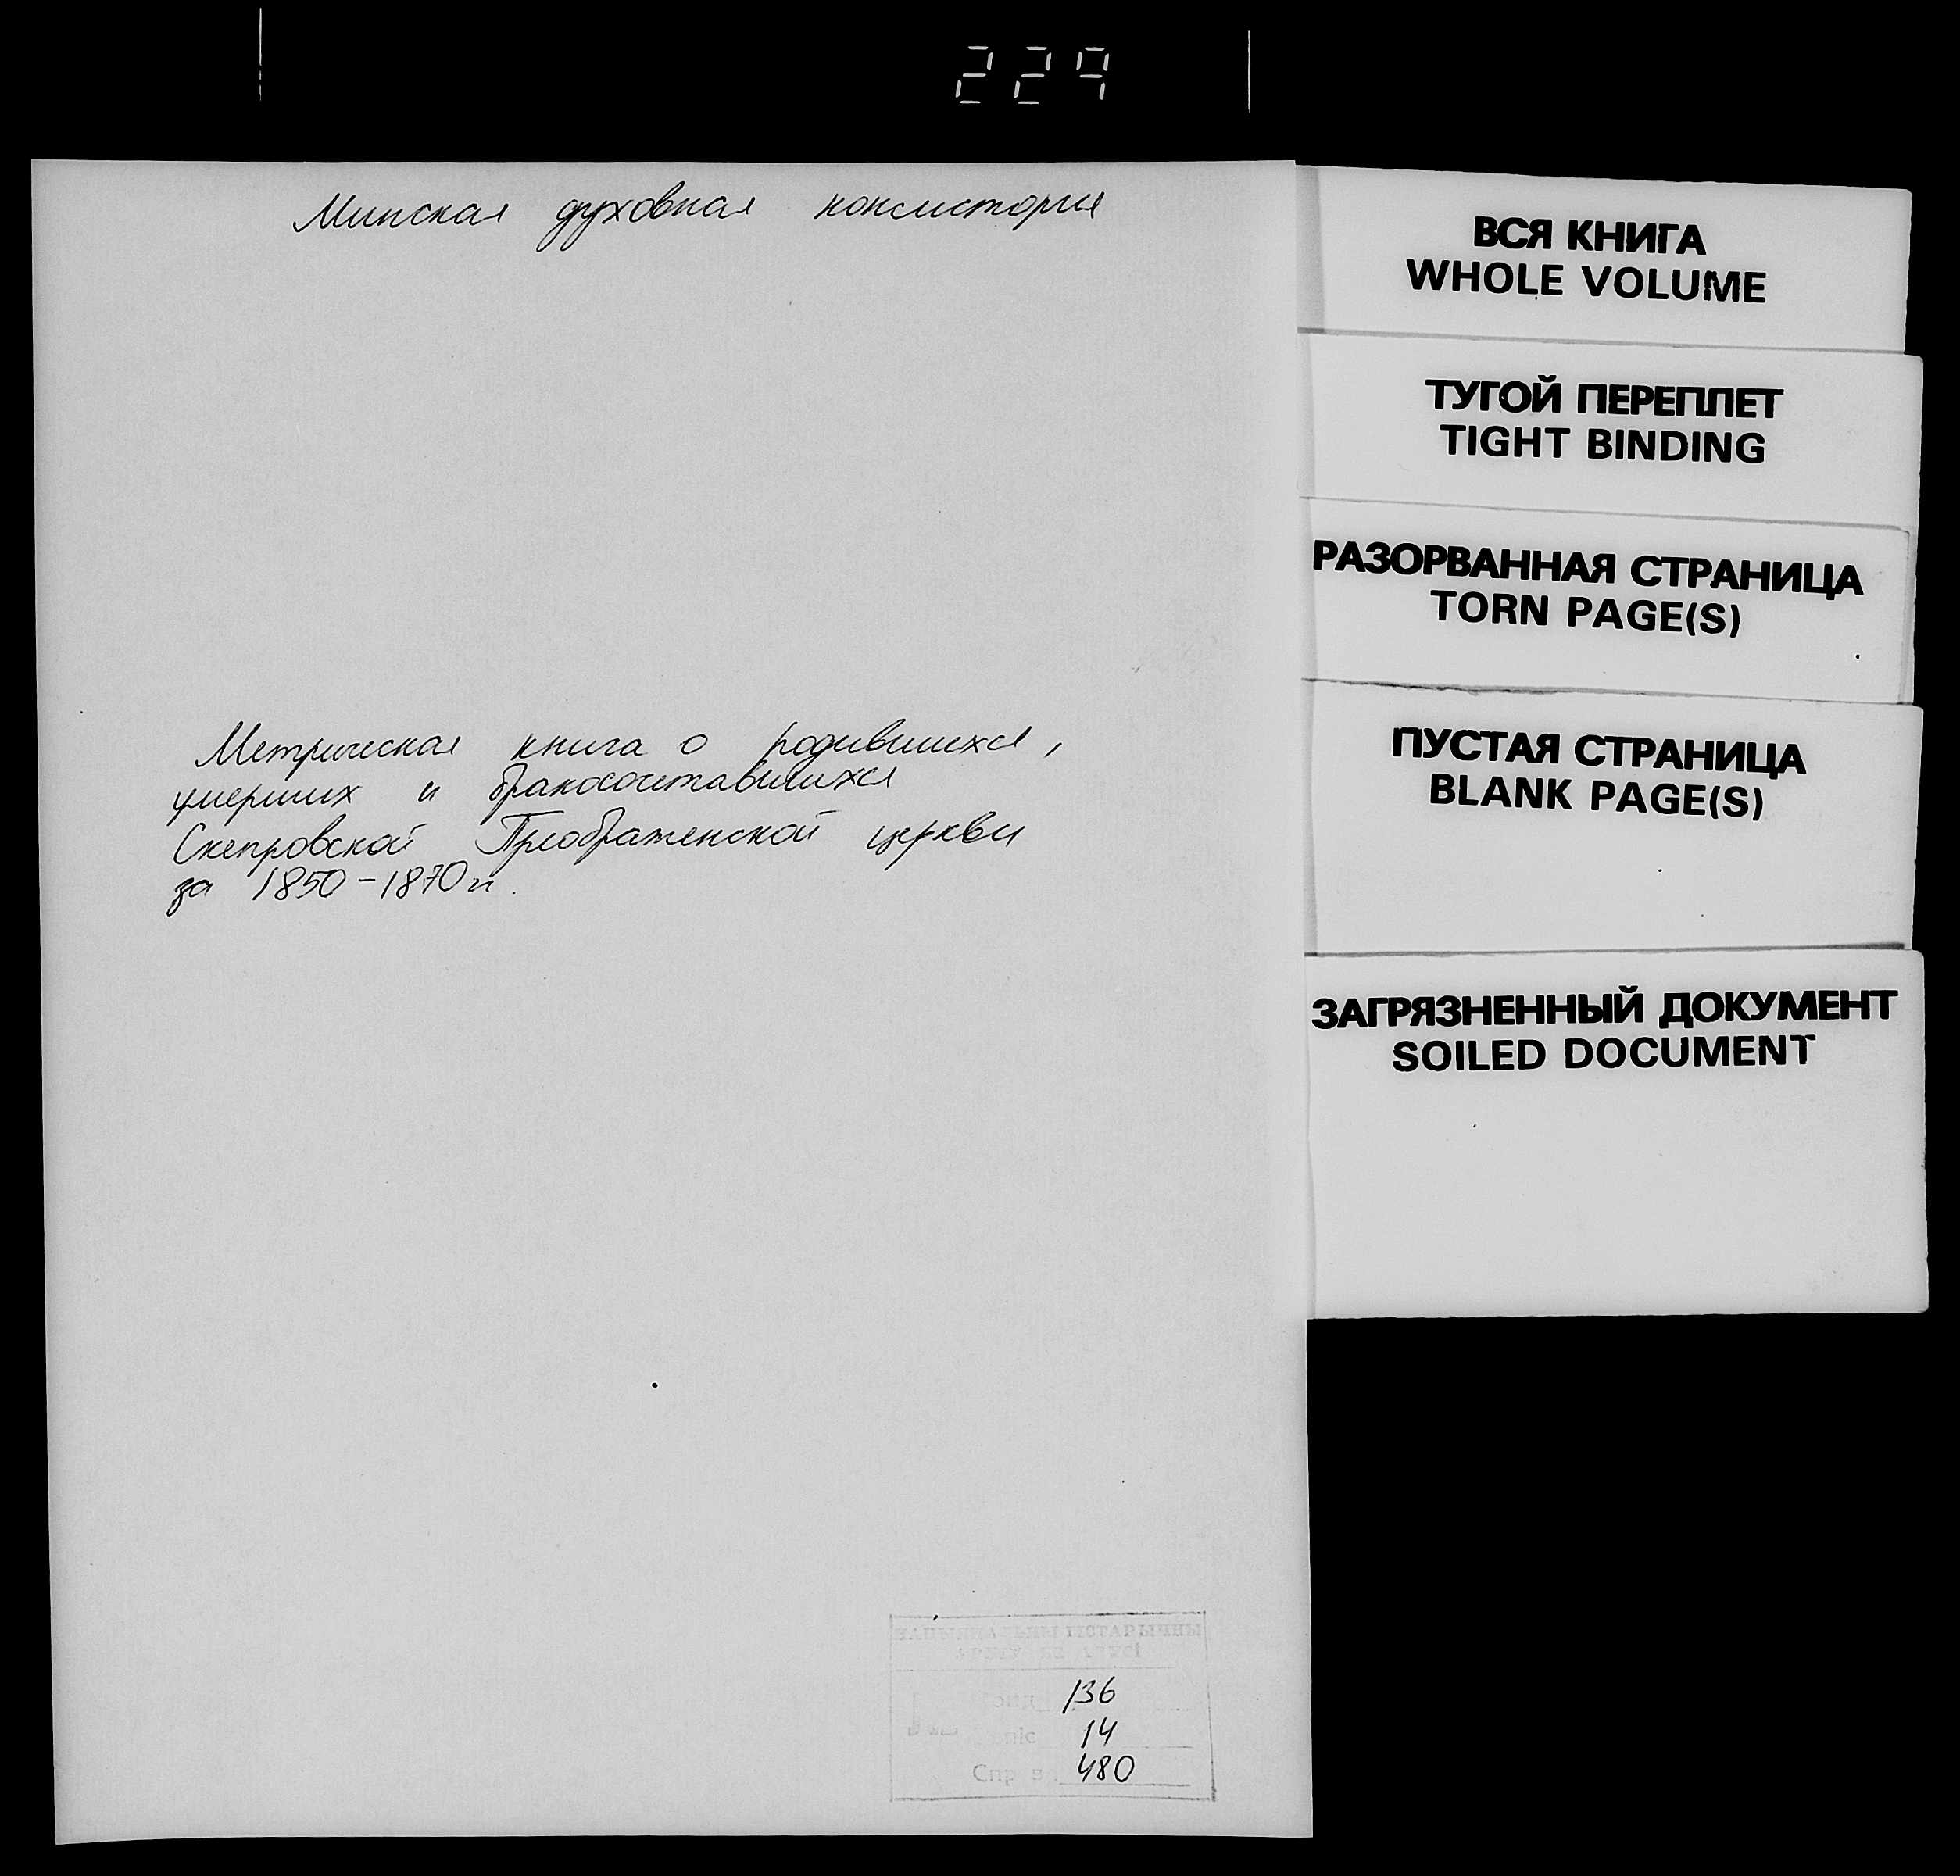 229
Минская духовная консистория
Метрическая книга о родившихся,
умерших и бракосочетавшихся
Скепровской Преображенской церкви
за 1850-1870 гг.
НАЦЫЯНАЛЬНЫ ГІСТАРЫЧНЫ
136
14
480
ВСЯ КНИГА
WHOLE VOLUME
ТУГОЙ ПЕРЕПЛЕТ
TIGHT BINDING
РАЗОРВАННАЯ СТРАНИЦА
TORN PAGE(S)
ПУСТАЯ СТРАНИЦА
BLANK PAGE(S)
ЗАГРЯЗНЕННЫЙ ДОКУМЕНТ
SOILED DOCUMENT